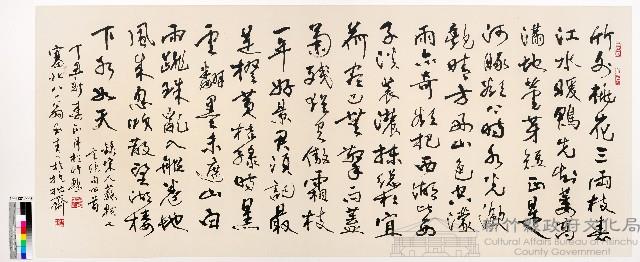 竹外桃花三兩枝春
江水暖鴨先知蔞蒿
滿地蘆芽短正是
河豚欲上時水光瀲
灩晴方好山色空濛
雨亦奇欲把西湖比西
子淡裝濃抹總相宜
荷盡已無擎雨蓋
菊殘猶有傲霜枝
一年好景君須記最
是橙黃桔綠時黑
雲翻墨未遮山白
雨跳珠亂入船卷地
風來忽吹散望湖樓
下水如天
錄宋人蘇軾之
句四首
丁丑新春正月於竹縣
塞北八八翁
新竹縣政府文化局
Cultural Affairs Bureau of Hsinchu
County Government